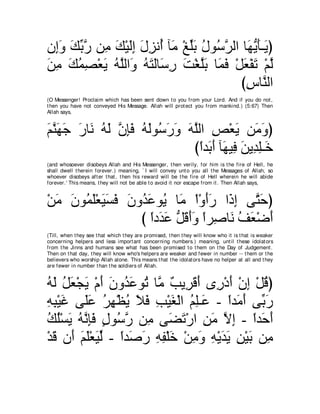 يَـأَيُّهَا الرَّسُولُ بَلِّغْ مَآ أُنزِلَ إِلَيْكَ مِن رَّبِّكَ وَإِن
لَّمْ تَفْعَلْ فَمَا بَلَّغْتَ رِسَالَتَهُ وَاللَّهُ يَعْصِمُكَ مِنَ
النَّاسِ)
(O Messenger! Proclaim which has been sent down to you from your Lord. And if you do not, then you have not conveyed His Message. Allah will protect you from mankind.) (5:67) Then Allah says,
(وَمَن يَعْصِ اللَّهَ وَرَسُولَهُ فَإِنَّ لَهُ نَارَ جَهَنَّمَ
خَـلِدِينَ فِيهَآ أَبَداً)
(and whosoever disobeys Allah and His Messenger, then verily, for him is the fire of Hell, he shall dwell therein forever.) meaning, `I will convey unto you all the Messages of Allah, so whoever disobeys after that, then his reward will be the fire of Hell wherein he will abide forever.' This means, they will not be able to avoid it nor escape from it. Then Allah says,
(حَتَّى إِذَا رَأَوْاْ مَا يُوعَدُونَ فَسَيَعْلَمُونَ مَنْ
أَضْعَفُ نَاصِراً وَأَقَلُّ عَدَداً )
(Till, when they see that which they are promised, then they will know who it is that is weaker concerning helpers and less important concerning numbers.) meaning, until these idolators from the Jinns and humans see what has been promised to them on the Day of Judgement. Then on that day, they will know who's helpers are weaker and fewer in number -- them or the believers who worship Allah alone. This means that the idolators have no helper at all and they are fewer in number than the soldiers of Allah.
(قُلْ إِنْ أَدْرِى أَقَرِيبٌ مَّا تُوعَدُونَ أَمْ يَجْعَلُ لَهُ
رَبِّى أَمَداً - عَـلِمُ الْغَيْبِ فَلاَ يُظْهِرُ عَلَى غَيْبِهِ
أَحَداً - إِلاَّ مَنِ ارْتَضَى مِن رَّسُولٍ فَإِنَّهُ يَسْلُكُ
مِن بَيْنِ يَدَيْهِ وَمِنْ خَلْفِهِ رَصَداً - لِّيَعْلَمَ أَن قَدْ